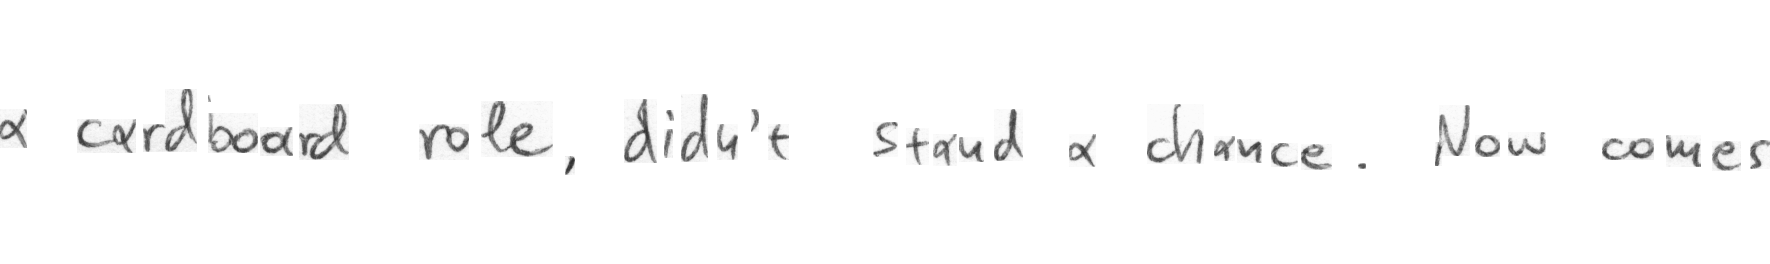 a cardboard role, didn't stand a chance. Now comes